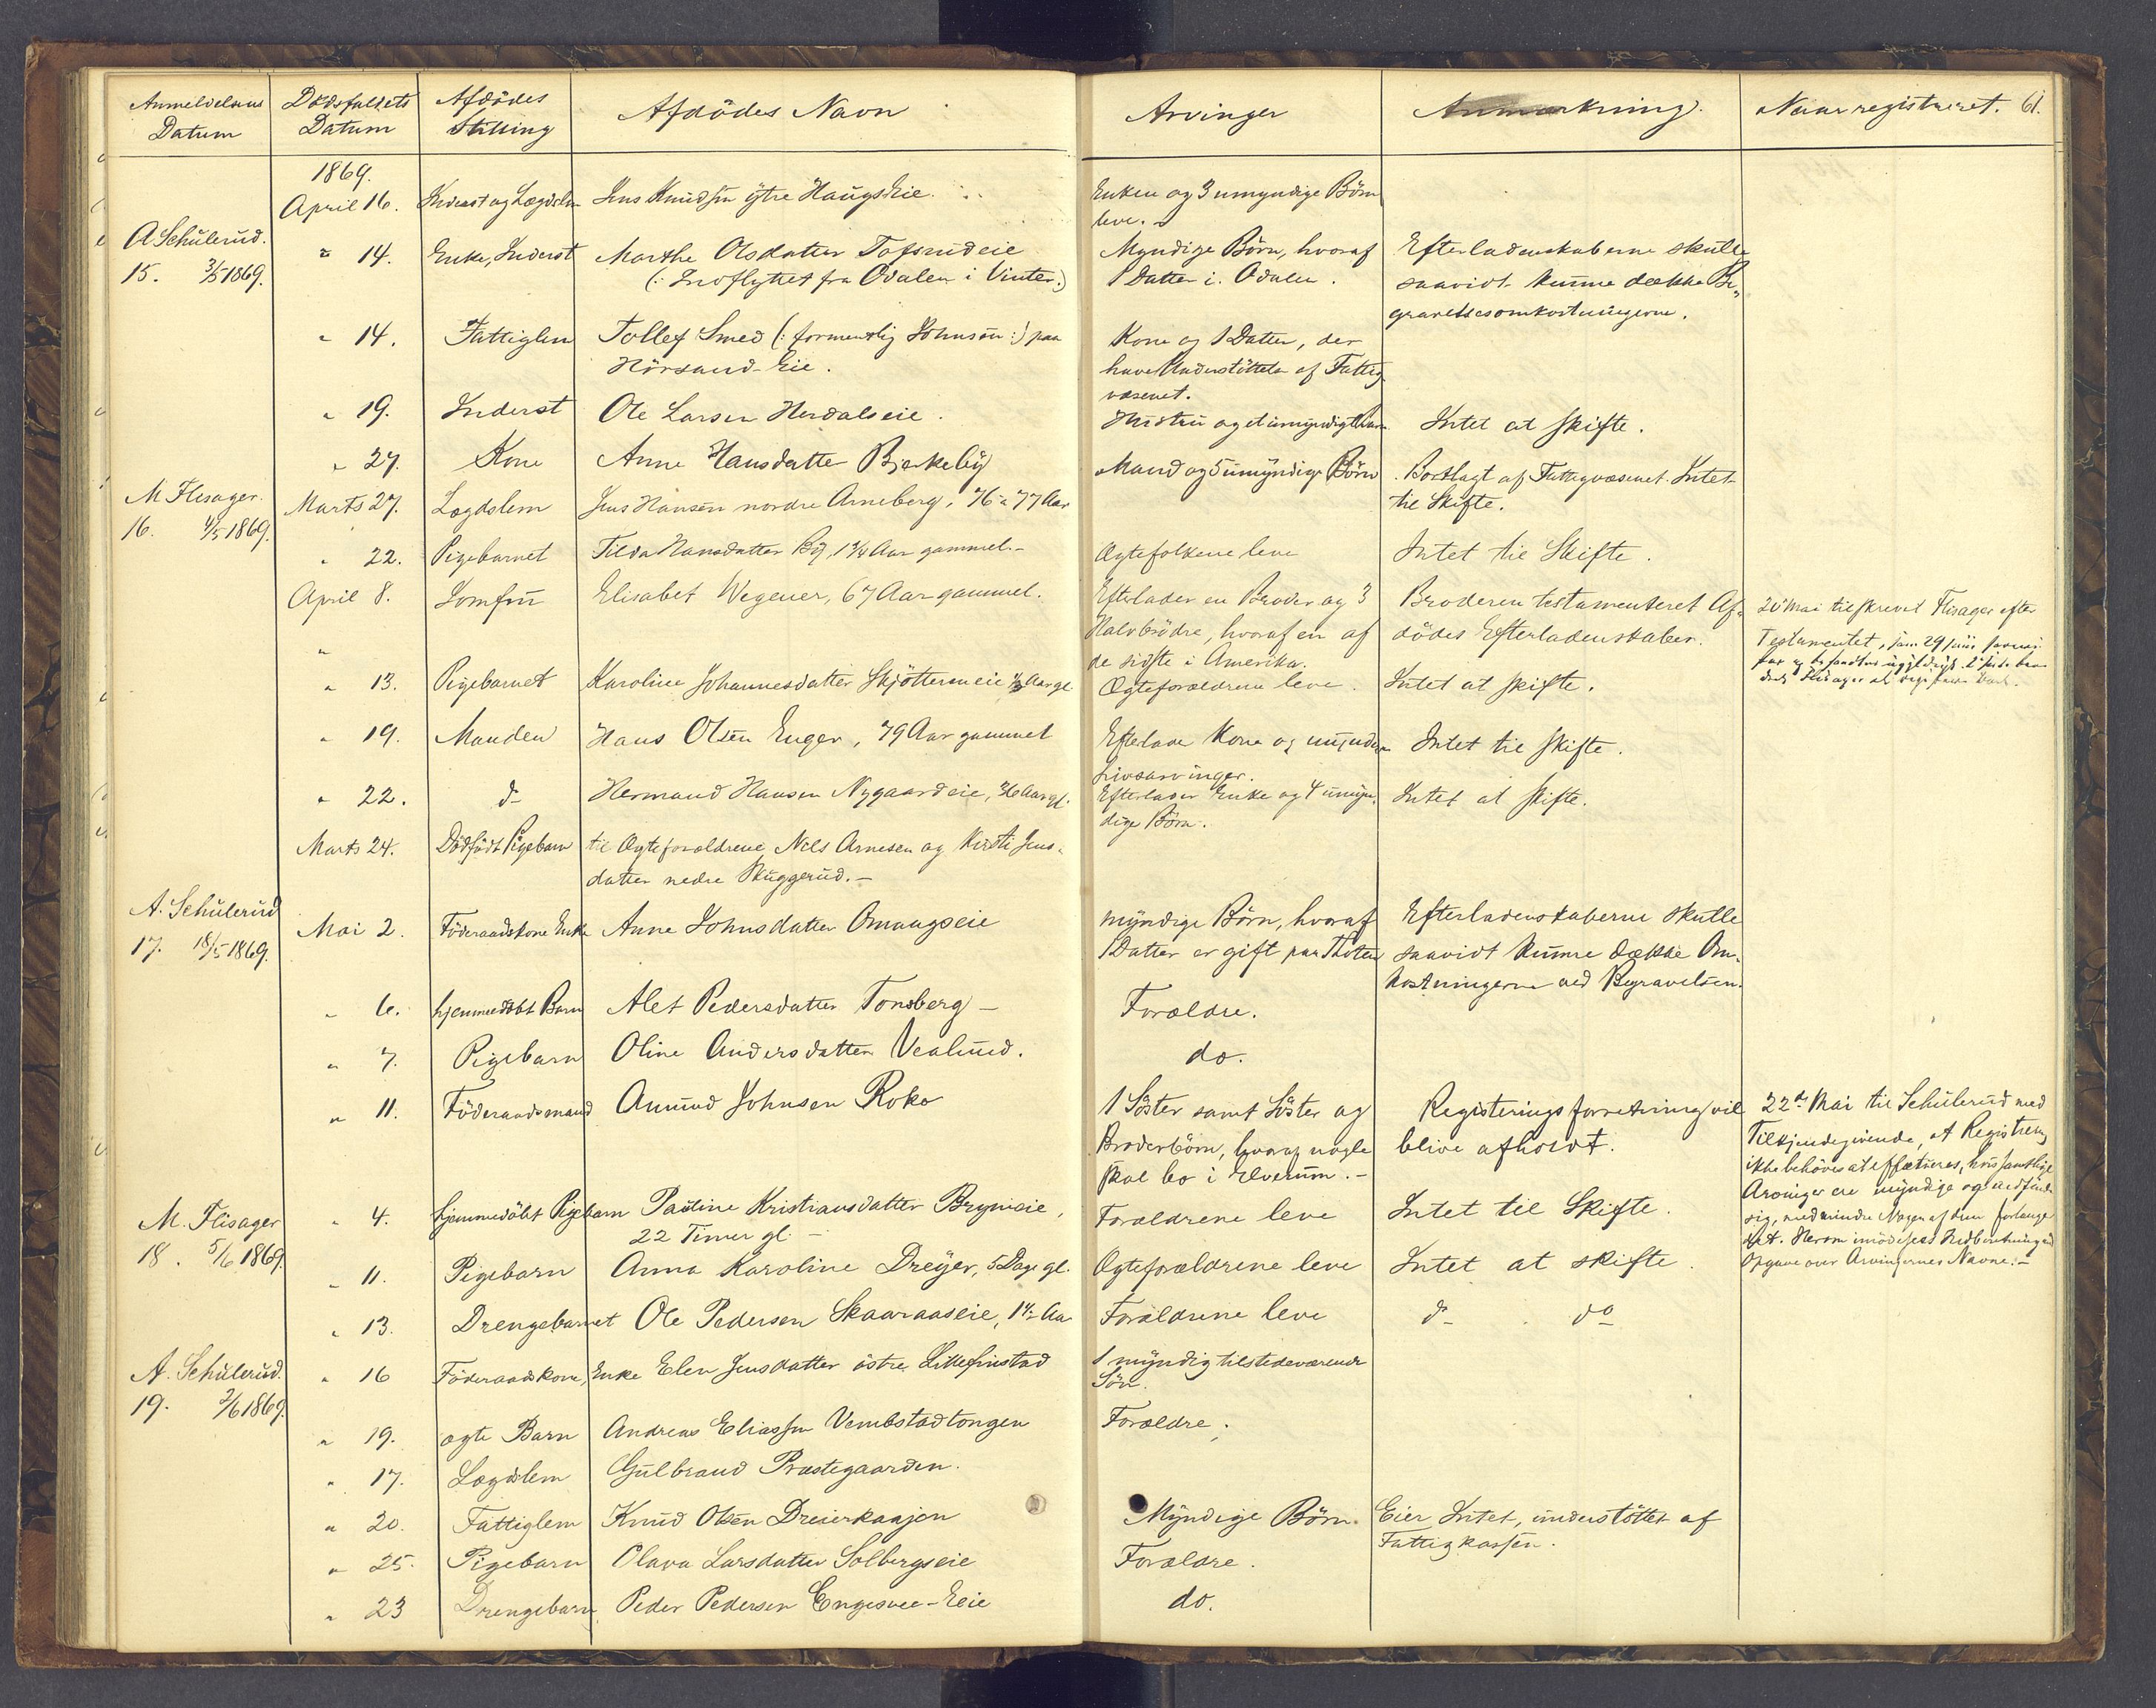 Anmeldelsens Datum Dødsfaldets Datum Afdödes Stilling Afdödes Navn Arvinger Anmærkning Naar registreret. 61.
1869.
April 16. Inderst og Lægdslem Jens Knudsen ytre Haugs Eie. Enken og 3 umyndige Börn
leve.
A Schülerud.
15. 3/5 1869.
" 14. Enke, Inderst Marthe Olsdatter Tofsrudeie Myndige Börn, hvoraf Efterladenskaberne skulle
(: Indflyttet fra Odalen i Vinter:) 1 Datter i Odalen. saavidt kunne dække Be-
gravelsesomkostningerne.
" 14. Fattiglem Tollef Smed (: formentlig Johnsen :) paa Kone og 1 Datter, der
Hörsand-Eie. have Understöttelse af Fattig
væsenet.
" 19. Inderst Ole Larsen Herdalseie. Hustru og et umyndigt Barn Intet at skifte.
" 27. Kone Anne Hansdatter Bjerkeby Mand og 5 umyndige Börn Bortlagt af Fattigvæsenet. Intet
til Skifte.
M Flisager.
16. 4/5 1869.
Marts 27. Lægdslem Jens Hansen nordre Arneberg, 76 a 77 Aar
" 22. Pigebarnet Tilda Hansdatter By, 1 3/4 Aar gammel.- Ægtefolkene leve Intet til Skifte.
April 8. Jomfru Elisabet Wegener, 67 Aar gammel. Efterlader en Broder og 3 Broderen testamenteret Af- 20 Mai tilskrevet Flisager efter
Halvbrödre, hvoraf en af dödes Efterladenskaber. Testamentet, som 29 Juni
de sidste i Amerika.
"
" 13. Pigebarnet Karoline Johannesdatter Skjötteren eie 1/2 Aar gl. Ægteforældrene leve. Intet at skifte.
" 19. Manden Hans Olsen Enger, 79 Aar gammel Efterlader Kone og Intet til skifte.
Livsarvinger.
" 22. do Hermand Hansen Nygaardeie, 36 Aar gl. Efterlader Enke og 4 umyn- Intet at skifte.
dige Börn.
Marts 24. Dödfödt Pigebarn til Ægteforældrene Nils Arnesen og Kirsti Jens-
datter nedre Skuggerud.-
A. Schülerud
17. 18/5 1869.
Mai 2. Föderaadskone Enke Anne Johnsdatter Omaagseie myndige Börn, hvoraf Efterladenskaberne skulle
1 Datter er gift paa Thoten saavidt kunne dække Om-
kostningerne ved Begravelsen.
" 6. hjemmedöbt Barn Alet Pedersdatter Tonsberg - Forældre.
" 7. Pigebarn Oline Andersdatter Vealund. do.
" 11. Föderaadsmand Amund Johnsen Roko 1 Söster samt Söster og Registeringsforretning vil 22de Mai til Schülerud med
Broderbörn, hvoraf nogle blive afholdt. Tilkjendegivende, at Registrering
skal bo i Elverum.- ikke behöves at effectueres, hvis samtlige
Arvinger ere myndige og
sig, medmindre Nogen af dem forlanger
det. Herom imödesees Indberetning med
Opgave over Arvingernes Navne.-
M. Flisager
18. 5/6 1869.
" 4. hjemmedöbt Pigebarn Pauline Kristiansdatter Brynieie, Forældrene leve Intet til Skifte.
22 Timer gl. -
" 11. Pigebarn Anna Karoline Dreyer, 5 Dage gl. Ægteforældrene leve Intet at skifte.
" 13. Drengebarnet Ole Pedersen Skaaraaseie, Forældrene leve do do
A. Schülerud.
19. 2/6 1869.
" 16 Föderaadskone, Enke Elen Jensdatter östre Lillefinstad 1 myndig tilstedeværende
Sön.
" 19. ægte Barn Andreas Eliassen Vembstadtongen Forældre.
" 17. Lægdslem Gulbrand Præstegaarden.
" 20. Fattiglem Knud Olsen Dreierkaajen Myndige Börn. Eier Intet, understöttet af
Fattigkassen.
" 25. Pigebarn Olava Larsdatter Solbergseie Forældre.
" 23 Drengebarn Peder Pedersen Engesvee-Eie do.